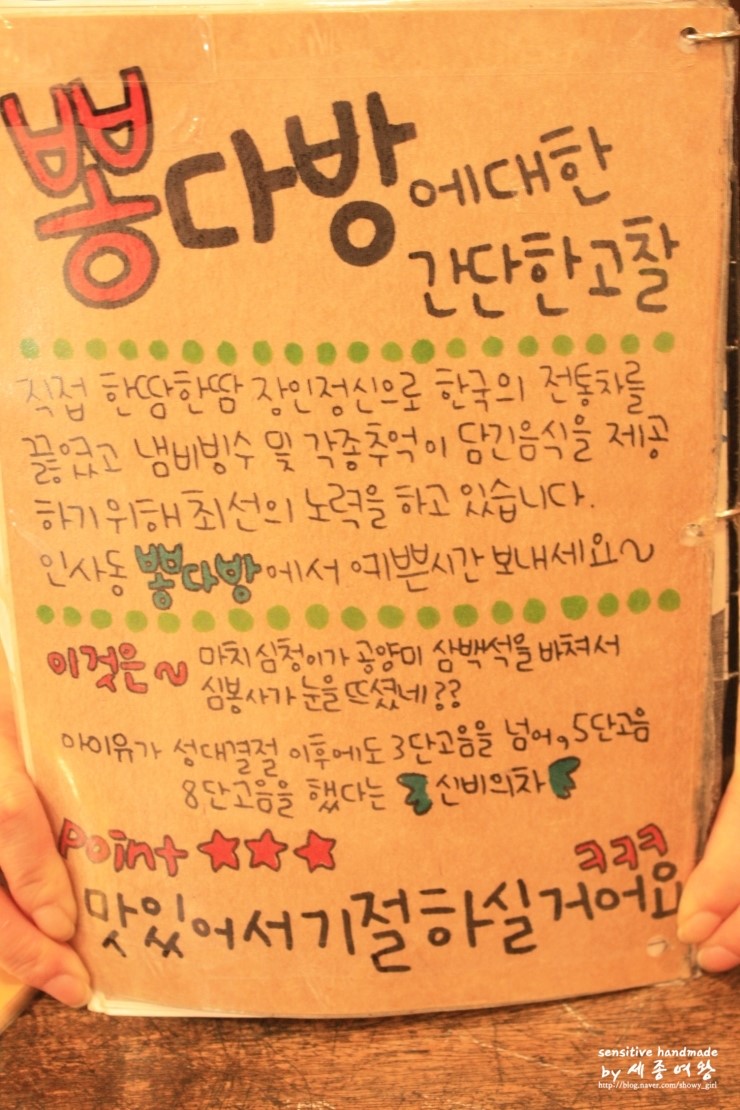 뽕다방에대한
간단한고찰
직접 한땀한땀 장인정신으로 한국의 전통차를
끓였고 냄비빙수 및 각종추억이 담긴음식을 제공
하기위해 최선의 노력을 하고 있습니다.
인사동 뽕다방에서 예쁜시간 보내세요~
이것은~ 마치 심청이가 공양미 삼백석을 바쳐서
심봉사가 눈을 뜨셨네??
아이유가 성대결절 이후에도 3단고음을 넘어, 5단고음
8단고음을 했다는 신비의차
point ★★★ ㅋㅋㅋ
맛있어서기절하실거어요
sensitive handmade
by 세종여왕
http://blog.naver.com/showy_girl